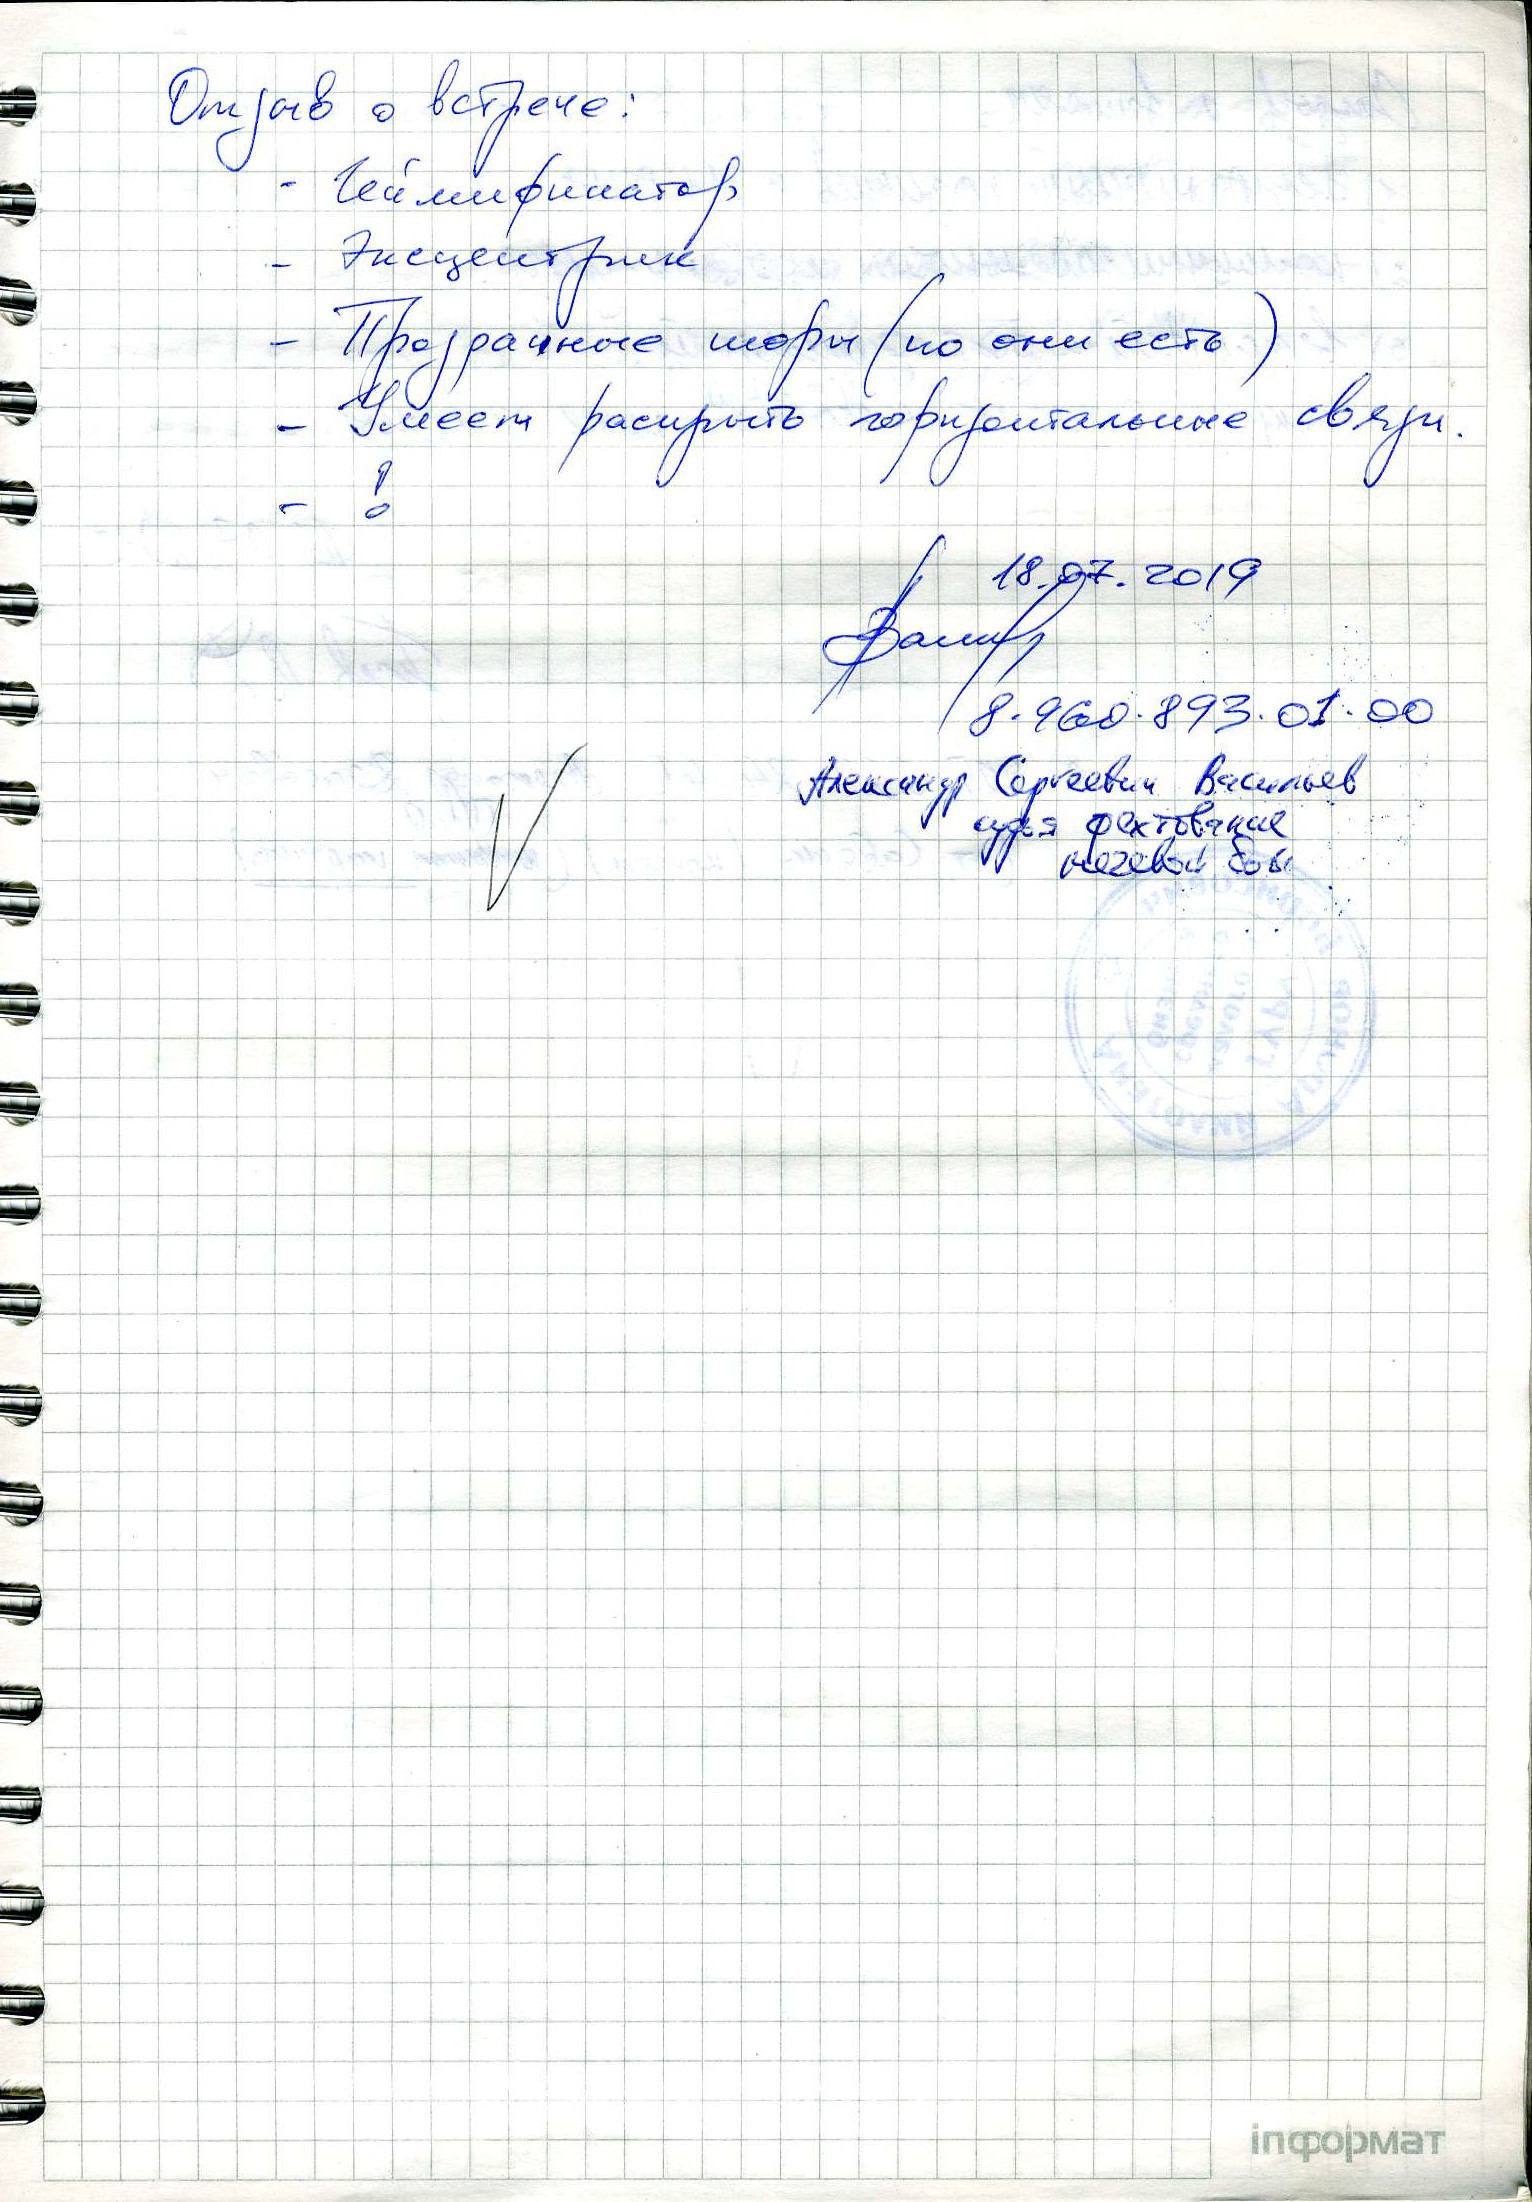 Отзыв о встрече:
- Геймификатор
- Эксцентрик
- Прозрачные шоры (но они есть)
- Умеет раскрыть горизонтальные связи.
- !
18.07.2019
8.960.893.01.00
Александр Сергеевич Васильев
судья фехтование
мечевой бой
inформат